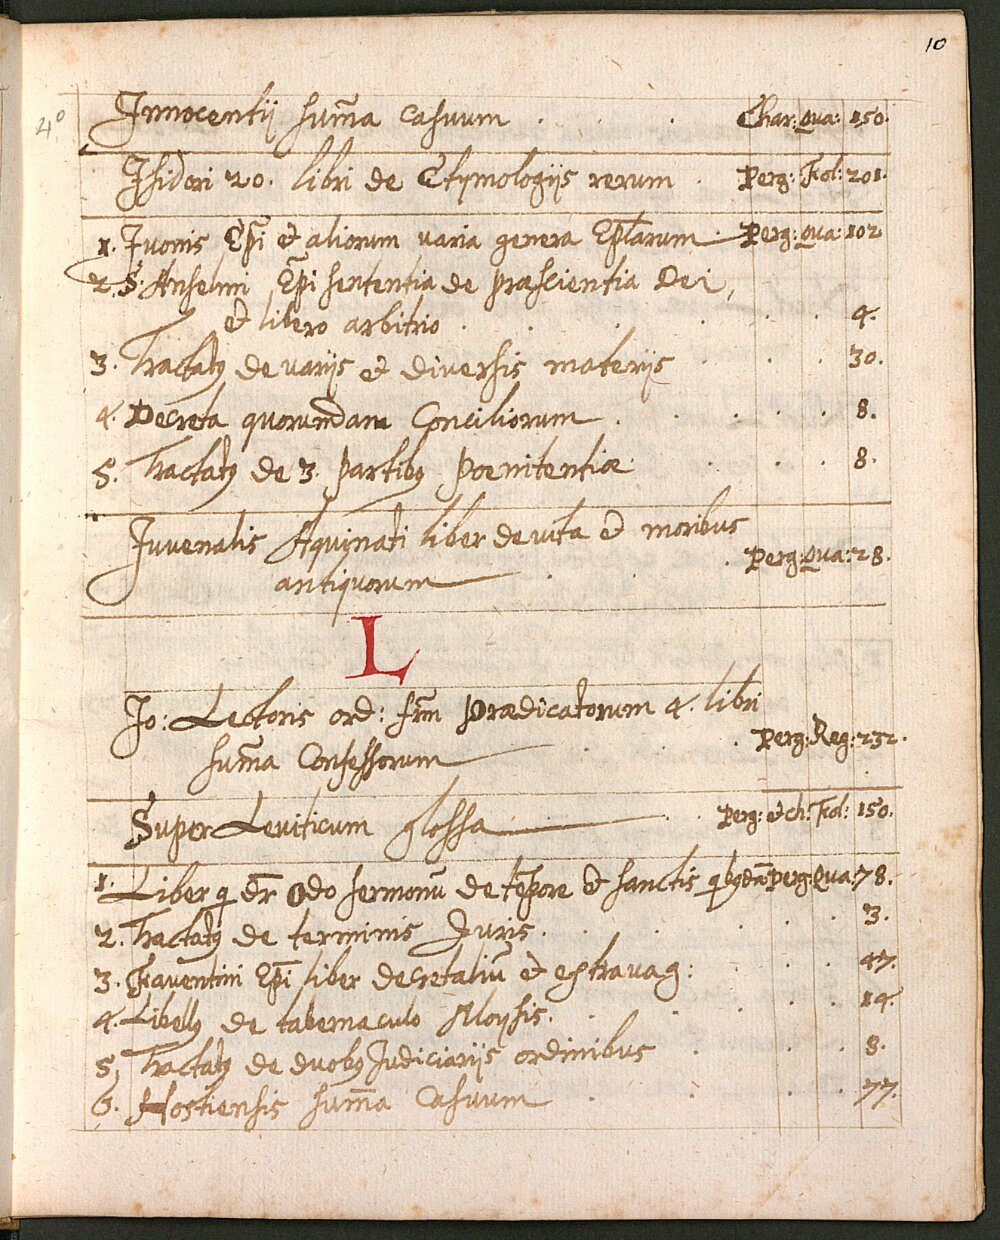 10
4.º
Innocentij sum̃a casuum . . . Char: Qua: 150.
Isidori 20. libri de Etymologijs rerum . Perg: Fol: 201.
1. Ivonis Ep̃i et aliorum varia genera Ep̃larum Perg: Qua: 102
2. S. Anselmi Ep̃i sententia de præscientia Dei,
et libero arbitrio . . . . . . 4.
3. Tractatꝰ de varijs et diversis materijs . . 30.
4. Decreta quorundam Conciliorum . . . . . 8.
5. Tractatꝰ de 3. partibꝰ Poenitentiæ . . . 8.
Juvenalis Aquinati liber de vita et moribus
antiquorum . . . Perg: Qua: 28.
L
Jo: Lectoris ord: frm̃ Prædicatorum 4. libri
sum̃a Confessorum . . . Perg: Reg: 232.
Super Leviticum glossa . Perg: et ch: Fol: 150.
1. Liber q dr̃ Odo sermonũ de tẽpore et sanctis qbꝰdã Perg: Qua: 78.
2. Tractatꝰ de terminis Juris . . . . . 3.
3. Faventini Ep̃i liber decretaliũ et extravag: . . . 47.
4. Libellꝰ de tabernaculo Moysis. . . . . 14.
5. Tractatꝰ de duobꝰ Judiciarijs ordinibus . . . 8.
6. Hostiensis sum̃a Casuum . . . . 77.